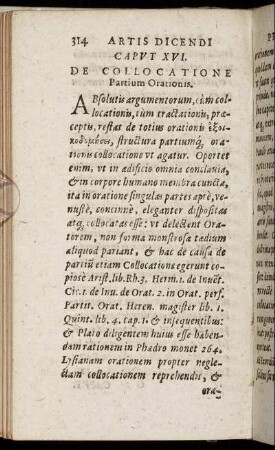 314 ARTIS DICENDI
CAPVT XVI.
DE COLLOCATIONE
Partium Orationis.
ABsolutis argumentorum, cùm col-
locationis, tùm tractationis, præ-
ceptis, restat de totius orationis ἐξοι-
κοδομήσει, structura partiumq́; ora-
tionis collocatione vt agatur. Oportet
enim, vt in ædificio omnia conclauia,
& in corpore humano membra cuncta,
ita in oratione singulas partes aptè, ve-
nustè, concinnè, eleganter dispositas
atq; collocatas esse: vt delectent Ora-
torem, non forma monstrosa tædium
aliquod pariant, & hac de causa de
partiũ etiam Collocatione egerunt copi
piosè Arist. lib. Rh. 3. Herm. 1. de Inuēt.
Cic. 1. de Inu. de Orat. 2. in Orat. perf.
Partit. Orat. Heren. magister lib. 1.
Quint. lib. 4. cap. 1. & insequentibus:
& Plato diligentem huius esse haben-
dam rationem in Phædro monet 264.
Lysianam orationem propter negle-
ctam collocationem reprehendit, &
ora-